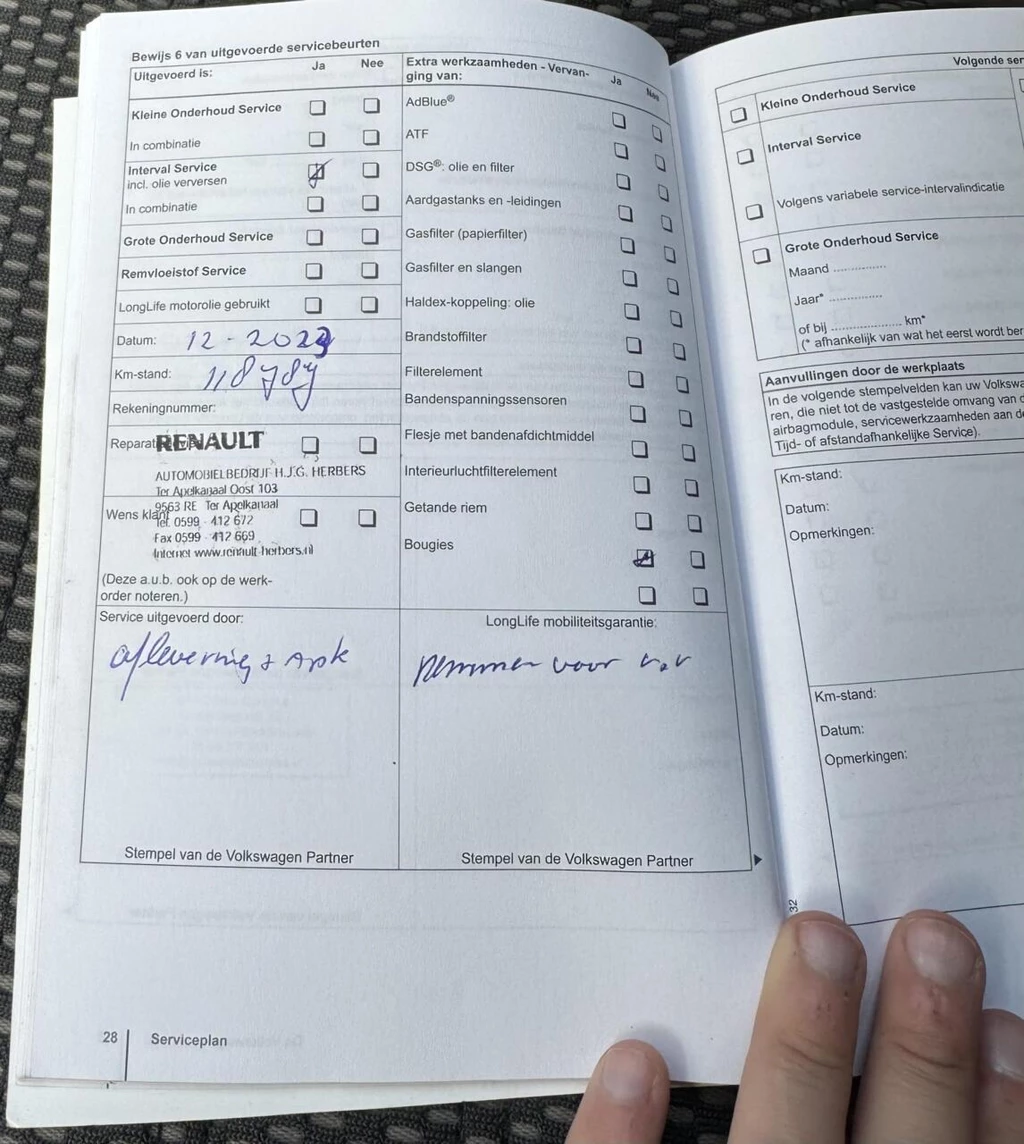 Bewijs 6 van uitgevoerde servicebeurten
Uitgevoerd is: Ja Nee
Kleine Onderhoud Service
In combinatie
Interval Service
incl. olie verversen
In combinatie
Grote Onderhoud Service
Remvloeistof Service
LongLife motorolie gebruikt
Datum: 12-2023
Km-stand: 118787
Rekeningnummer:
RENAULT
AUTOMOBIELBEDRIJF H.J.G. HERBERS
Ter Apelkanaal Oost 103
9563 RE Ter Apelkanaal
Wens klant
Tel. 0599 - 412 672
Fax 0599 - 412 669
Internet www.renault-herbers.nl
(Deze a.u.b. ook op de werk-
order noteren.)
Service uitgevoerd door:
aflevering + Apk
Stempel van de Volkswagen Partner
Extra werkzaamheden - Vervan-
ging van: Ja Nee
AdBlue®
ATF
DSG®: olie en filter
Aardgastanks en -leidingen
Gasfilter (papierfilter)
Gasfilter en slangen
Haldex-koppeling: olie
Brandstoffilter
Filterelement
Bandenspanningssensoren
Flesje met bandenafdichtmiddel
Interieurluchtfilterelement
Getande riem
Bougies
LongLife mobiliteitsgarantie:
remmen voor
Stempel van de Volkswagen Partner
28 Serviceplan
Kleine Onderhoud Service
Interval Service
Volgens variabele service-intervalindicatie
Grote Onderhoud Service
Maand ..............
Jaar* ..............
of bij .................... km*
(* afhankelijk van wat het eerst wordt ber
Aanvullingen door de werkplaats
In de volgende stempelvelden kan uw Volkswa
ren, die niet tot de vastgestelde omvang van
airbagmodule, servicewerkzaamheden aan de
Tijd- of afstandafhankelijke Service).
Km-stand:
Datum:
Opmerkingen:
Km-stand:
Datum:
Opmerkingen:
32